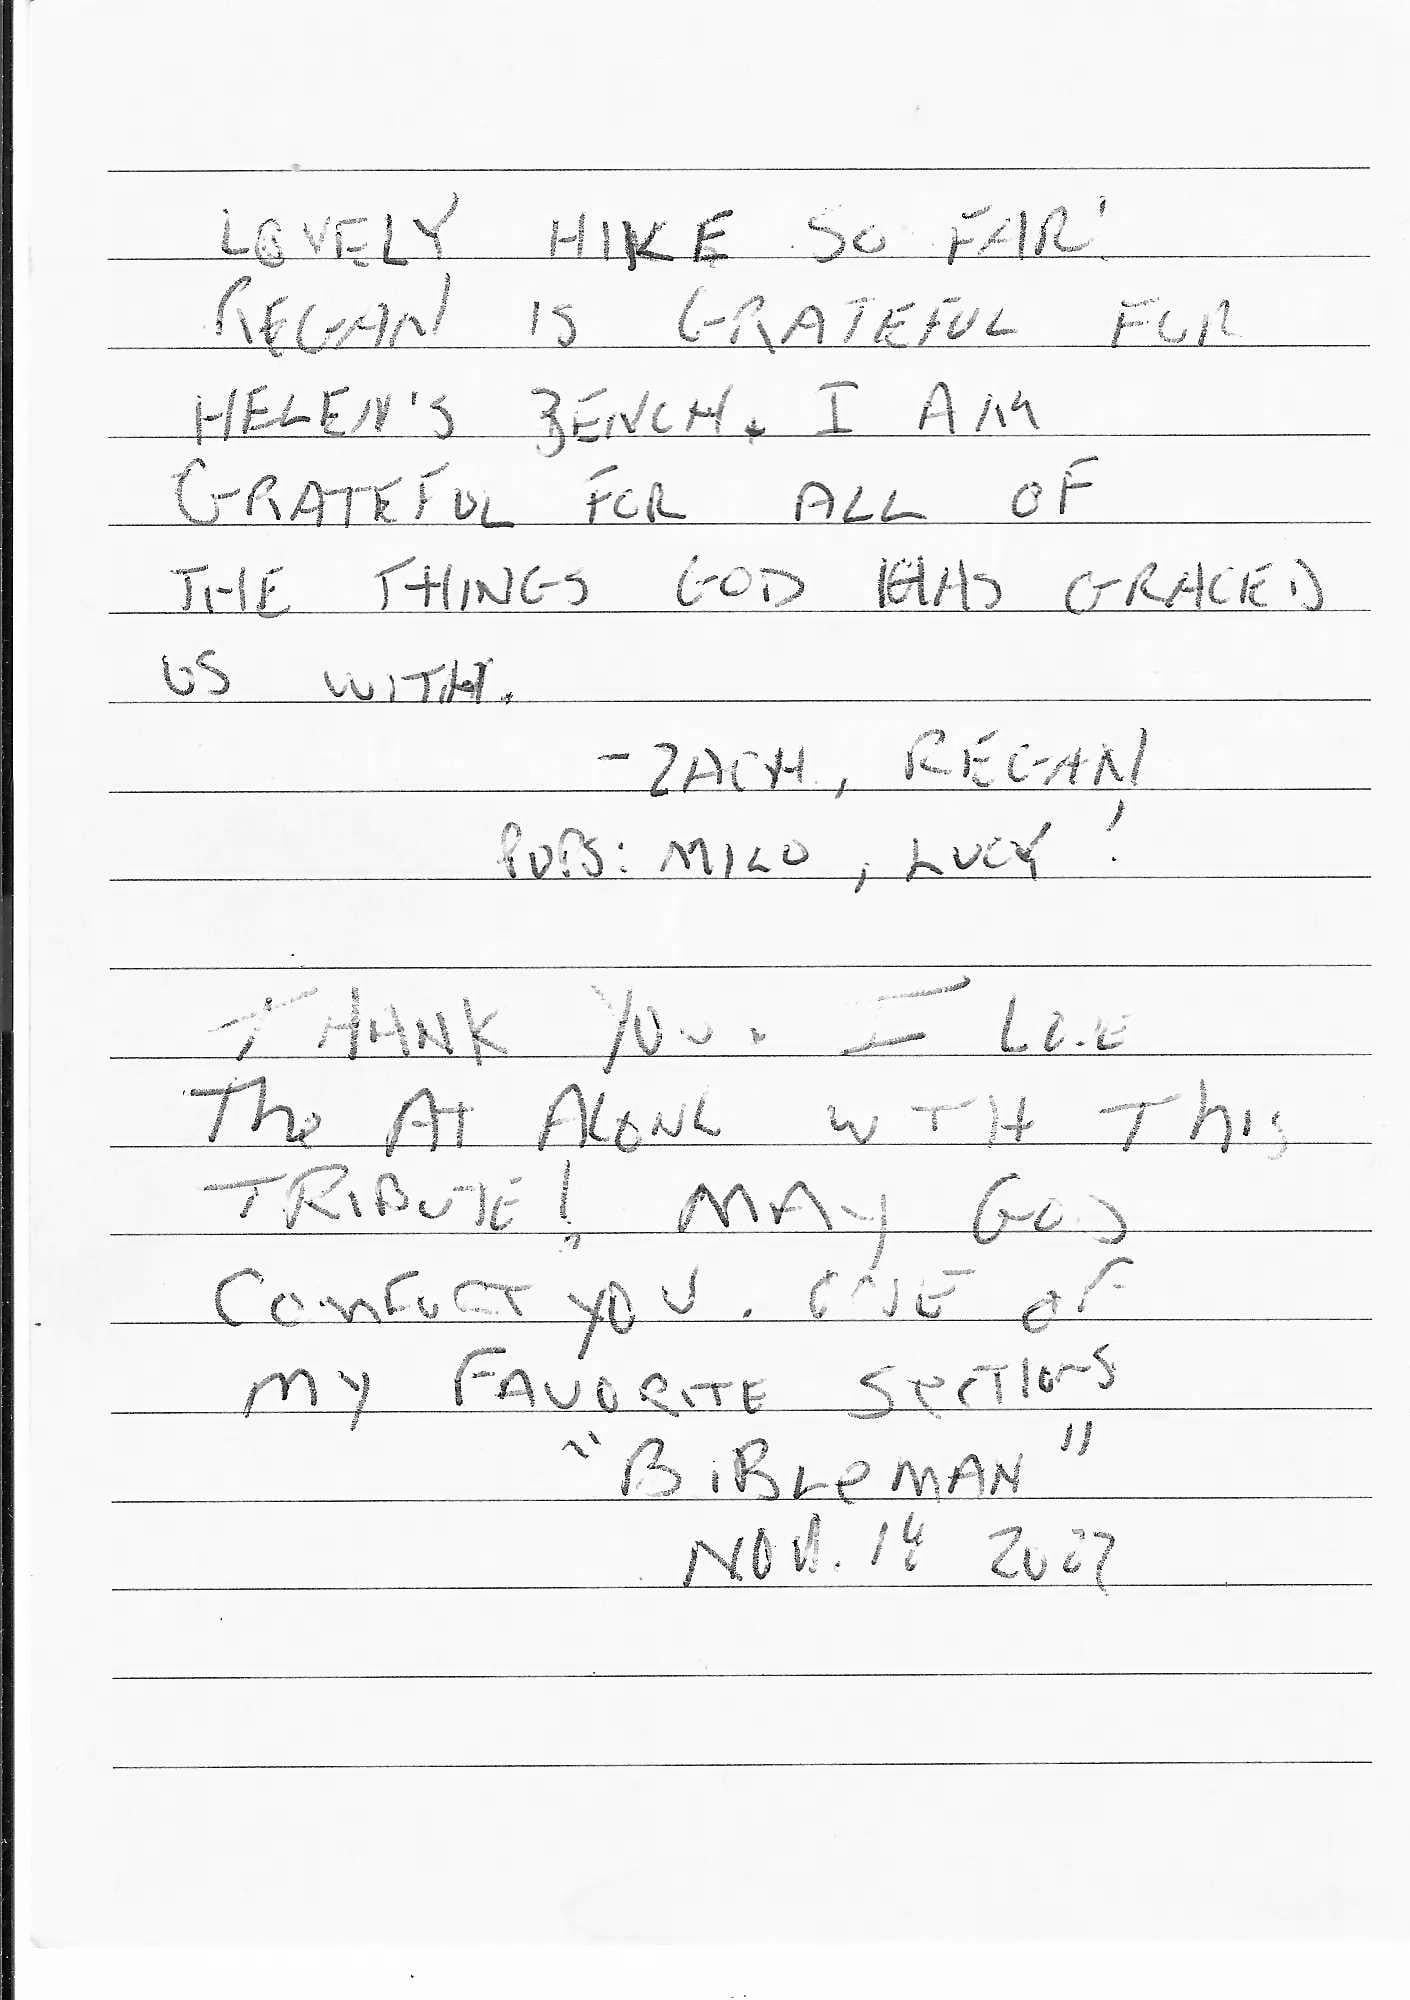 LOVELY HIKE SO FAR!
REGAN IS GRATEFUL FOR
HELEN'S BENCH. I AM
GRATEFUL FOR ALL OF
THE THINGS GOD HAS GRACED
US WITH.
-ZACH, REGAN
PUPS: MILO, LUCY!
THANK YOU. I LOVE
The AT ALONG WITH This
TRIBUTE! MAY GOD
COMFORT YOU. ONE OF
MY FAVORITE SECTIONS
"BiBLeMAN"
NOV. 14